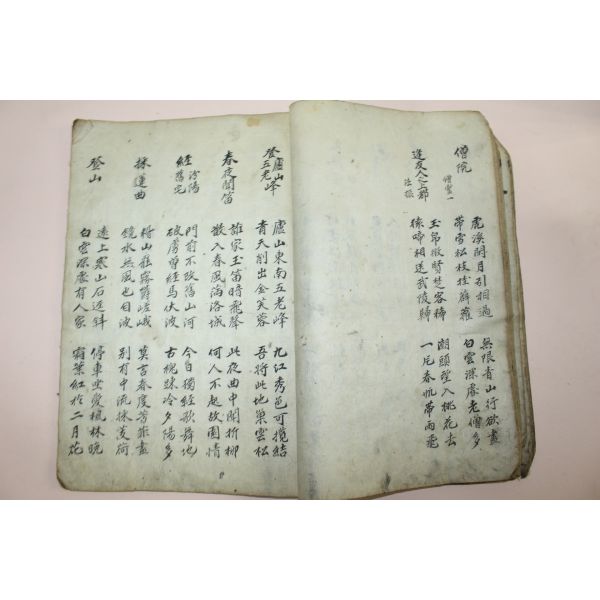 僧院
僧靈一
虎溪閒月引相過
帶雪松枝挂薜蘿
無限青山行欲盡
白雲深處老僧多
送友人之上都
法振
玉帛徵賢楚客稀
猿啼相送武陵歸
湖頭望入桃花去
一片春帆帶雨飛
登廬山
五老峰
廬山東南五老峰
青天削出金芙蓉
九江秀色可攬結
吾將此地巢雲松
春夜聞笛
誰家玉笛暗飛聲
散入春風滿洛城
此夜曲中聞折柳
何人不起故園情
經汾陽舊宅
門前不改舊山河
破虜曾經馬伏波
今日獨經歌舞地
古槐疎冷夕陽多
採蓮曲
稽山霧鬱嵯峨
鏡水無風也自波
莫言春度芳菲盡
別有中流採芰荷
登山
遠上寒山石逕斜
白雲深處有人家
停車坐愛楓林晚
霜葉紅於二月花